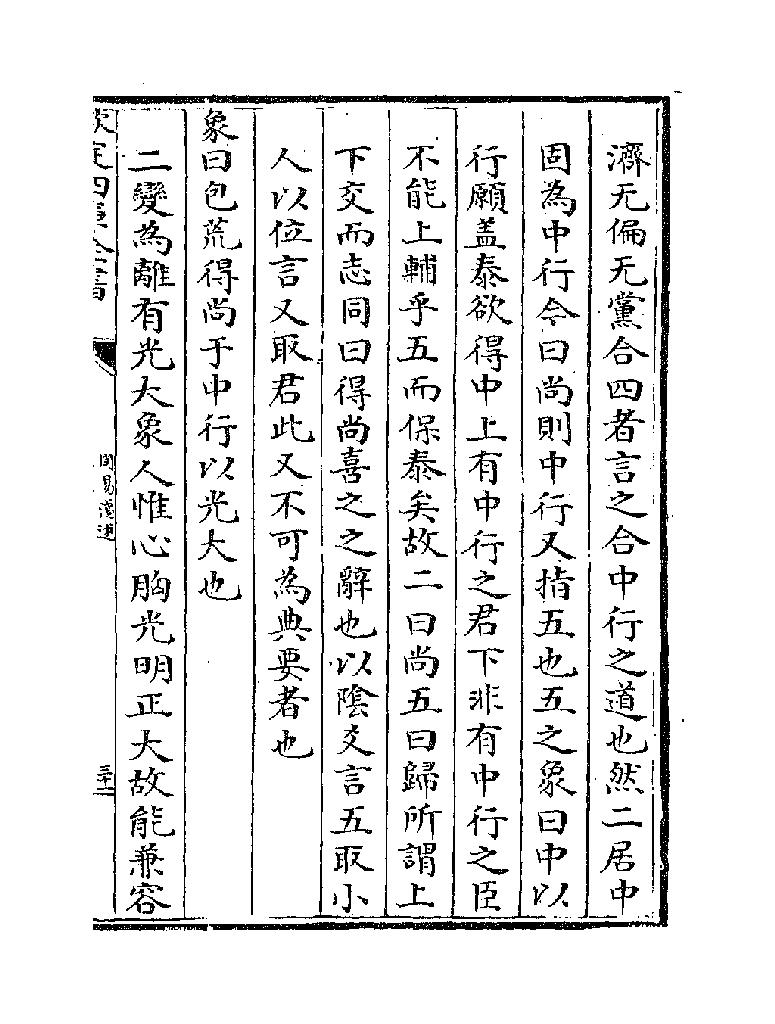 濟无偏无黨合四者言之合中行之道也然二居中
固為中行今曰尚則中行又指五也五之象曰中以
行願盖泰欲得中上有中行之君下非有中行之臣
不能上輔乎五而保泰矣故二曰尚五曰歸所謂上
下交而志同曰得尚喜之之辭也以陰爻言五取小
人以位言又取君此又不可為典要者也
象曰包荒得尚于中行以光大也
二變為離有光大象人惟心胸光明正大故能兼容
欽定四庫全書
周易淺述
三十二